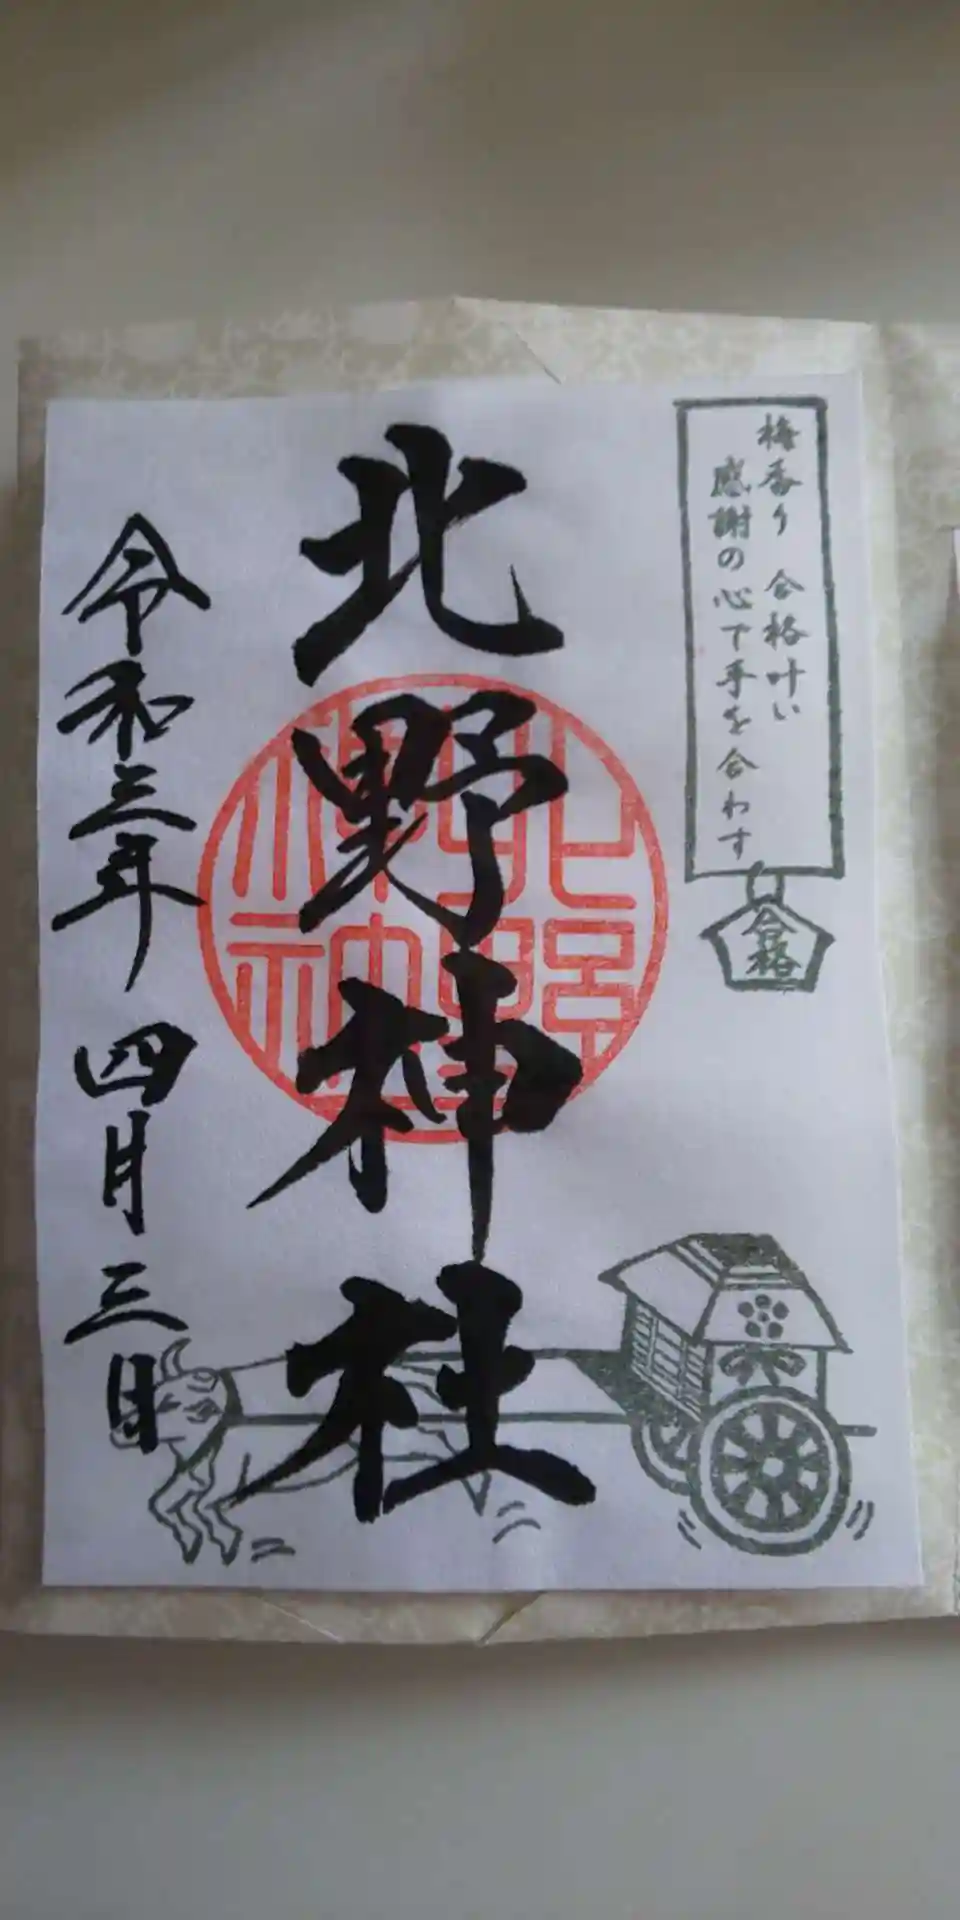 梅香り 合格叶い
感謝の心で手を合わす
合格
北野神社
北野
神社
令和三年 四月三日